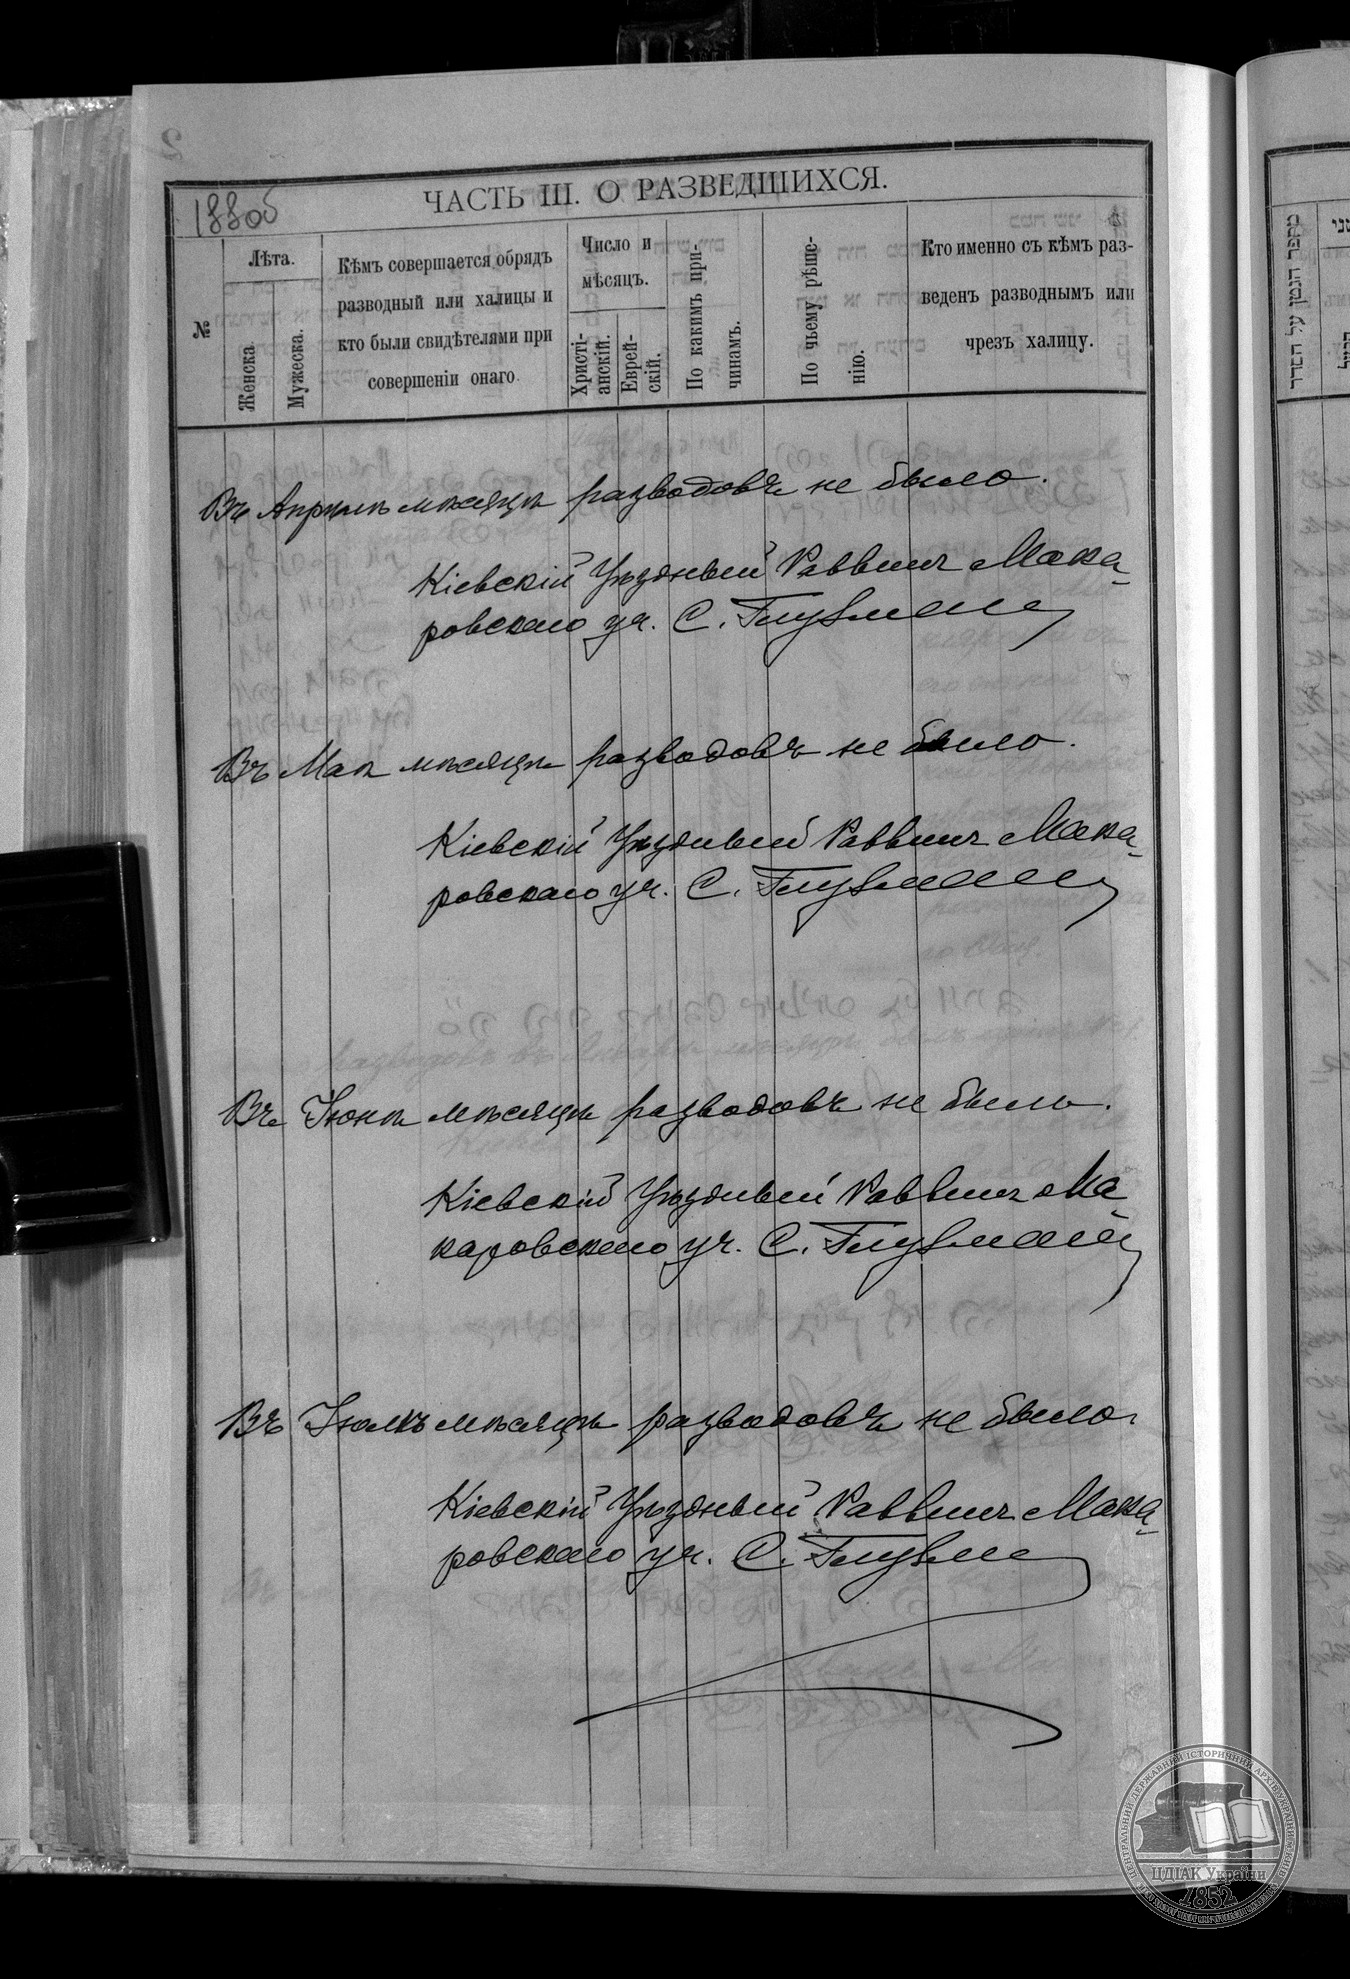 188об
ЧАСТЬ III. О РАЗВЕДШИХСЯ.
№
Лѣта.
Женска
Мужеска.
Кѣмъ совершается обрядъ
разводный или халицы и
кто были свидѣтелями при
совершеніи онаго.
Число и
мѣсяцъ.
Христі-
анскій.
Еврей-
скій.
По какимъ при-
чинамъ.
По чьему рѣше-
нію.
Кто именно съ кѣмъ раз-
веденъ разводнымъ или
чрезъ халицу.
Въ Апрѣлѣ мѣсяцѣ разводовъ не было.
Кіевскій Уѣздный Раввинъ Мака-
ровскаго уч. С. Глузманъ
Въ Маѣ мѣсяцѣ разводовъ не было.
Кіевскій Уѣздный Раввинъ Мака-
ровскаго уч. С. Глузманъ
Въ Іюнѣ мѣсяцѣ разводовъ не было.
Кіевскій Уѣздный Раввинъ Ма
каровскаго уч. С. Глузманъ
Въ Іюлѣ мѣсяцѣ разводовъ не было.
Кіевскій Уѣздный Раввинъ Мака-
ровскаго уч. С. Глузман
ЦЕНТРАЛЬНИЙ ДЕРЖАВНИЙ ІСТОРИЧНИЙ АРХІВ УКРАЇНИ
ЦДІАК України
1852